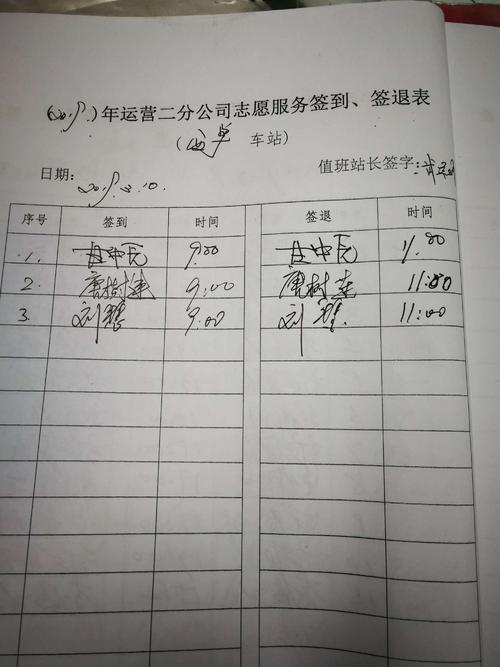 (2019)年运营二分公司志愿服务签到、签退表
(西单 车站)
日期: 2019.3.10. 值班站长签字:
序号 签到 时间 签退 时间
1. 9:00 11:00
2. 唐树 9:00 唐树 11:00
3. 刘 9:00 刘 11:00